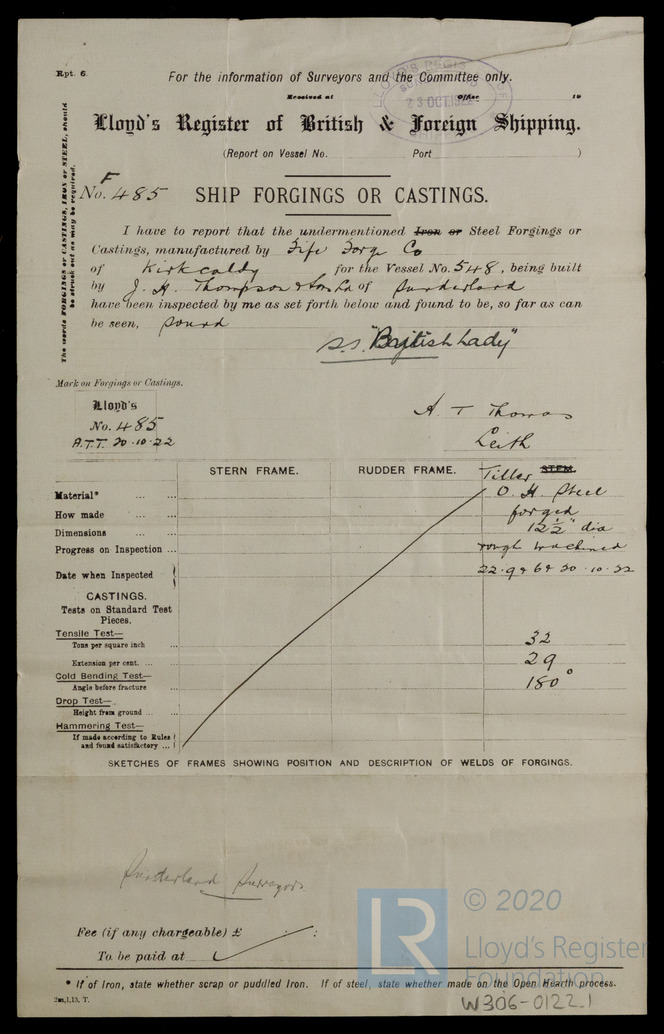 Rpt. 6.
For the information of Surveyors and the Committee only.
LLOYD'S REGIS
23 OCT 1922
Received at Office 19
Lloyd's Register of British & Foreign Shipping.
(Report on Vessel No. Port )
The words FORGINGS or CASTINGS, IRON or STEEL, should
be struck out as may be required.
F
No. 485 SHIP FORGINGS OR CASTINGS.
I have to report that the undermentioned Iron or Steel Forgings or
Castings, manufactured by Fife Forge Co
of Kirkcaldy for the Vessel No. 548, being built
by J. H. Thompson & Sons Ld of Sunderland
have been inspected by me as set forth below and found to be, so far as can
be seen, sound
s.s. "British Lady"
Mark on Forgings or Castings.
Lloyd's
No. 485
A.T.T. 20.10.22
A T Thomas
Leith
STERN FRAME. RUDDER FRAME. Tiller STEM.
Material* ... ... O. H. Steel
How made ... ... forged
Dimensions ... ... 12½" dia
Progress on Inspection ... rough machined
Date when Inspected 22.9 & 6 & 20.10.22
CASTINGS.
Tests on Standard Test
Pieces.
Tensile Test—
Tons per square inch ... 32
Extension per cent. ... ... 29
Cold Bending Test—
Angle before fracture ... 180°
Drop Test—
Height from ground ... ...
Hammering Test—
If made according to Rules
and found satisfactory ...
SKETCHES OF FRAMES SHOWING POSITION AND DESCRIPTION OF WELDS OF FORGINGS.
Sunderland Surveyors
Fee (if any chargeable) £ : :
To be paid at
LR
© 2020
Lloyd's Register
Foundation
* If of Iron, state whether scrap or puddled Iron. If of steel, state whether made on the Open Hearth process.
2m,1,13. T.
W306-0122_1